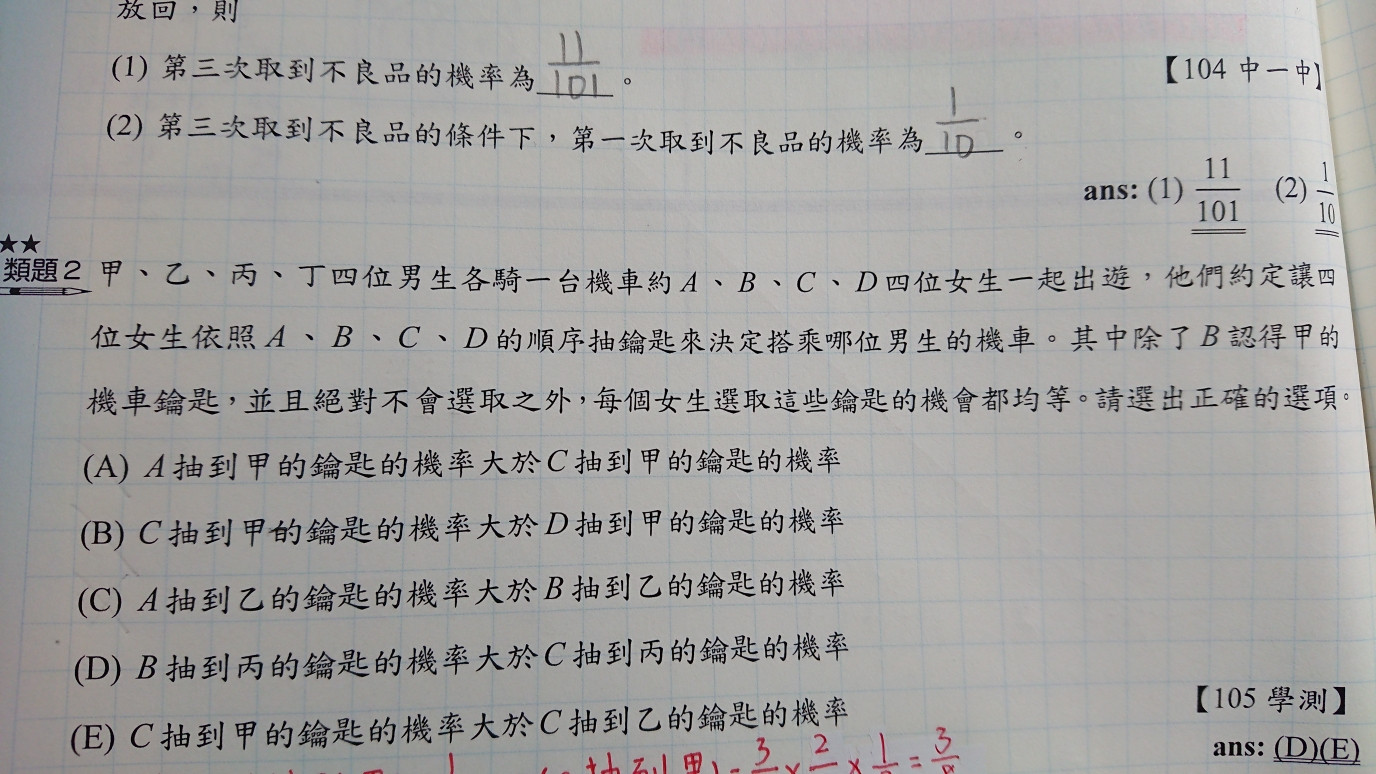 放回，則
(1) 第三次取到不良品的機率為 11/101 。 【104 中一中】
(2) 第三次取到不良品的條件下，第一次取到不良品的機率為 1/10 。
ans: (1) 11/101 (2) 1/10
★★
類題2 甲、乙、丙、丁四位男生各騎一台機車約 A、B、C、D 四位女生一起出遊，他們約定讓四
位女生依照 A、B、C、D 的順序抽鑰匙來決定搭乘哪位男生的機車。其中除了 B 認得甲的
機車鑰匙，並且絕對不會選取之外，每個女生選取這些鑰匙的機會都均等。請選出正確的選項。
(A) A 抽到甲的鑰匙的機率大於 C 抽到甲的鑰匙的機率
(B) C 抽到甲的鑰匙的機率大於 D 抽到甲的鑰匙的機率
(C) A 抽到乙的鑰匙的機率大於 B 抽到乙的鑰匙的機率
(D) B 抽到丙的鑰匙的機率大於 C 抽到丙的鑰匙的機率
(E) C 抽到甲的鑰匙的機率大於 C 抽到乙的鑰匙的機率 【105 學測】
ans: (D)(E)